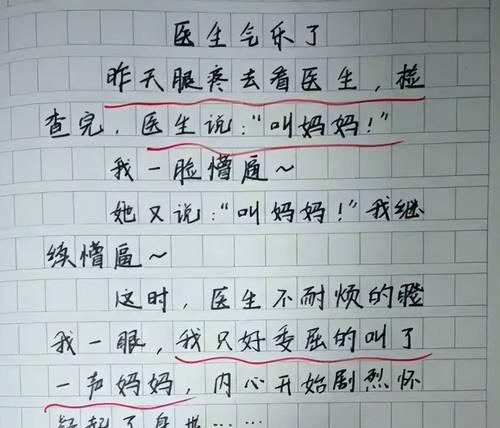 医生气乐了
昨天眼疼去看医生，检
查完，医生说：“叫妈妈！”
我一脸懵逼～
她又说：“叫妈妈！”我继
续懵逼～
这时，医生不耐烦的瞪
我一眼，我只好委屈的叫了
一声妈妈，内心开始剧烈怀